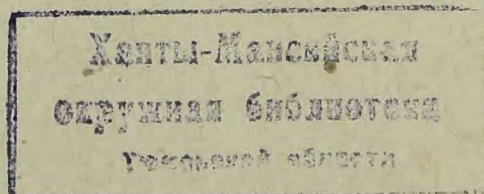 Ханты-Мансийская
окружная библиотека
Тюменской области